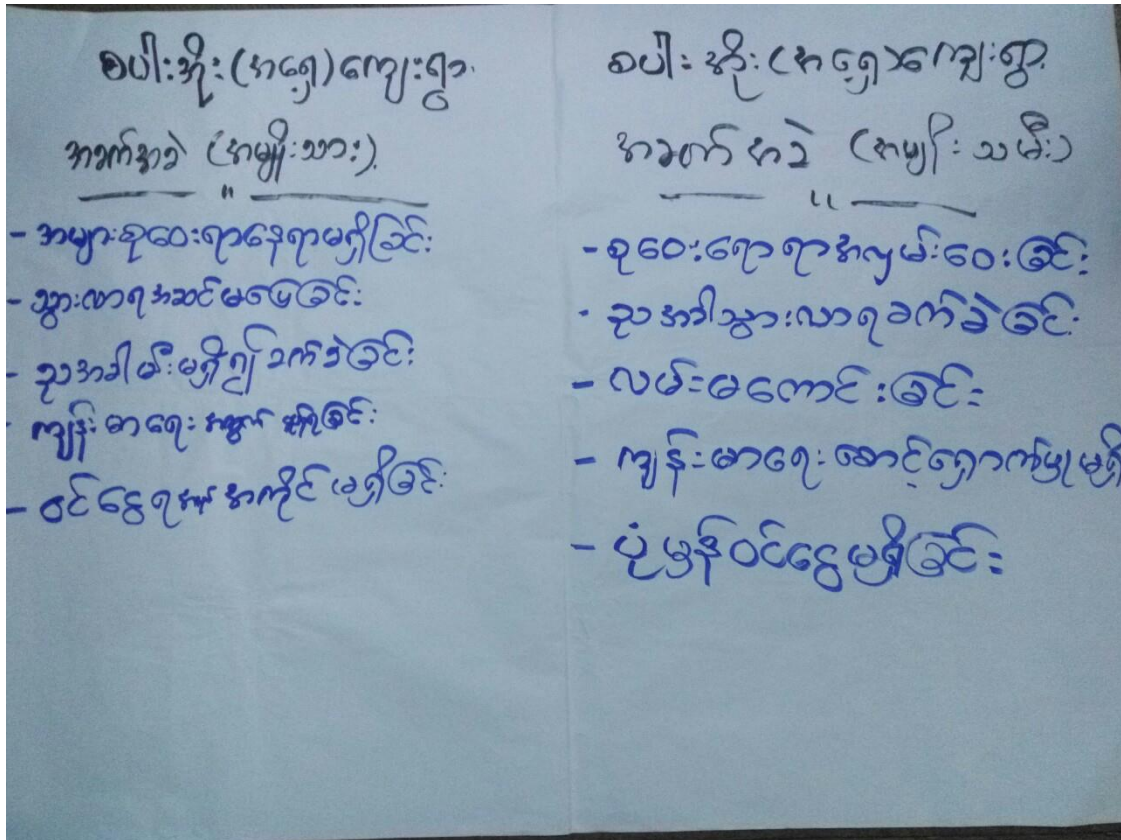 စပါးအိုး(အရှေ့)ကျေးရွာ
အခက်အခဲ (အမျိုးသား)
"
- အများစုဝေးရာနေရာမရှိခြင်း
- သွားလာရအဆင်မပြေခြင်း
- ညအခါမီးမရှိ၍ ခက်ခဲခြင်း
- ကျန်းမာရေး အတွက် ခြင်း
- ဝင်ငွေရ အကိုင် မရှိခြင်း
စပါးအိုး(အရှေ့)ကျေးရွာ
အခက်အခဲ (အမျိုးသမီး)
"
- စုဝေးရောရာအလှမ်းဝေးခြင်း
- ညအခါသွားလာရခက်ခဲခြင်း
- လမ်းမကောင်းခြင်း
- ကျန်းမာရေးစောင့်ရှောက်မှုမရှိ
- ပုံမှန်ဝင်ငွေမရှိခြင်း